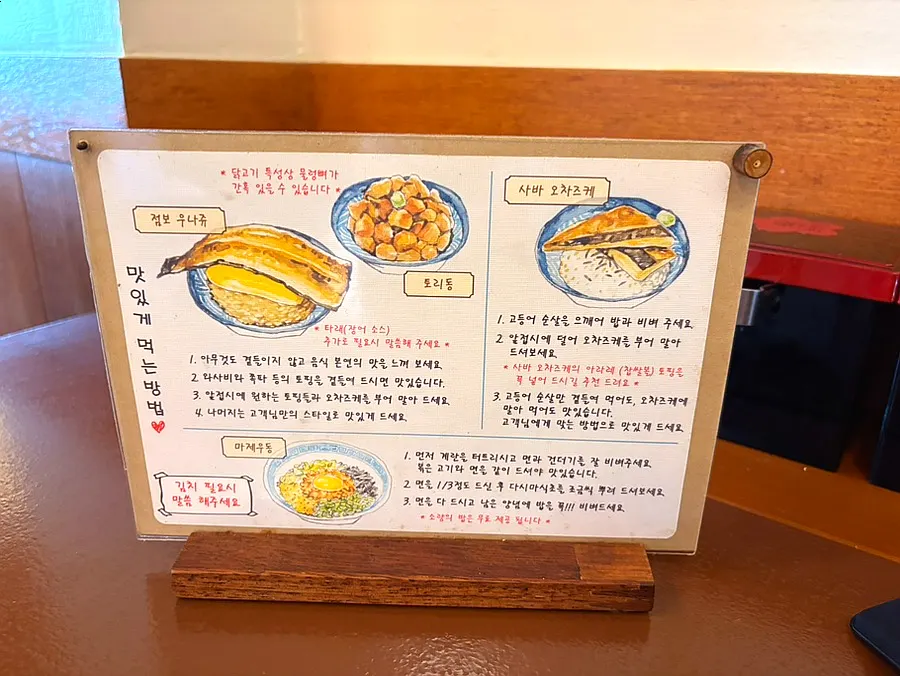 맛있게 먹는방법
* 닭고기 특성상 물렁뼈가
간혹 있을 수 있습니다 *
점보 우나쥬
토리동
* 타래(장어 소스)
추가로 필요시 말씀해 주세요 *
1. 아무것도 곁들이지 않고 음식 본연의 맛을 느껴 보세요.
2. 와사비와 쪽파 등의 토핑을 곁들어 드시면 맛있습니다.
3. 앞접시에 원하는 토핑들과 오차즈케를 부어 말아 드세요.
4. 나머지는 고객님만의 스타일로 맛있게 드세요.
사바 오차즈케
1. 고등어 순살을 으깨어 밥과 비벼 주세요.
2. 앞접시에 덜어 오차즈케를 부어 말아
드셔보세요.
* 사바 오차즈케의 아라레 (찹쌀볼) 토핑을
꼭 넣어 드시길 추천 드려요 *
3. 고등어 순살만 곁들여 먹어도, 오차즈케에
말아 먹어도 맛있습니다.
고객님에게 맞는 방법으로 맛있게 드세요.
마제우동
김치 필요시
말씀 해주세요
1. 먼저 계란을 터트리시고 면과 건더기를 잘 비벼주세요.
볶은 고기와 면을 같이 드셔야 맛있습니다.
2. 면을 1/3정도 드신 후 다시마식초를 조금씩 뿌려 드셔보세요.
3. 면을 다 드시고 남은 양념에 밥을 꼭!!! 비벼드세요.
* 소량의 밥은 무료 제공 됩니다 *